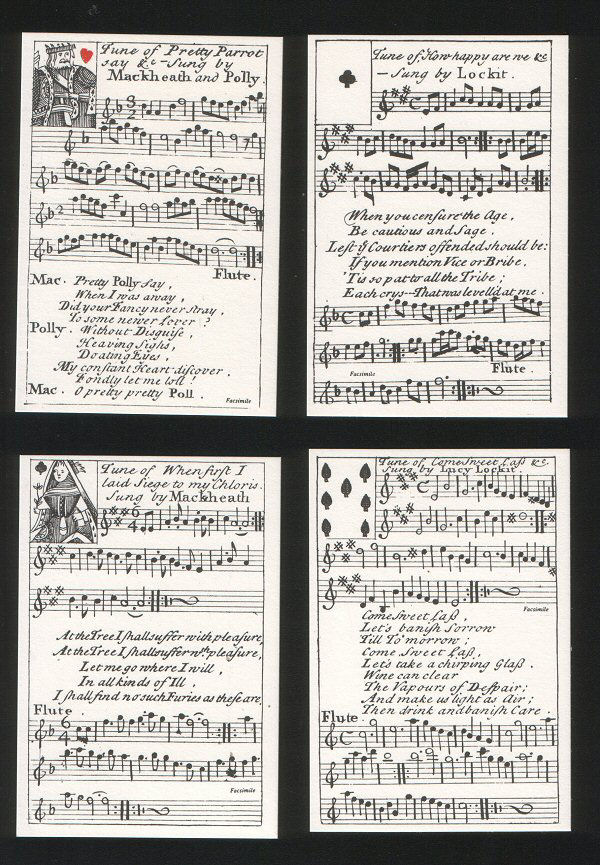 Tune of Pretty Parrot
say &c - Sung by
Mackheath and Polly.
Flute.
Mac. Pretty Polly say,
When I was away,
Did your Fancy never stray,
To some newer Lover?
Polly. Without Disguise,
Heaving Sighs,
Doating Eyes,
My constant Heart discover.
Fondly let me loll!
Mac. O pretty pretty Poll.
Facsimile
Tune of How happy are we &c
- Sung by Lockit.
When you censure the Age,
Be cautious and Sage,
Lest ye Courtiers offended should be:
If you mention Vice or Bribe,
'Tis so pat to all the Tribe;
Each crys--That was levell'd at me.
Flute.
Facsimile
Tune of When first I
laid Siege to my Chloris.
Sung by Mackheath
At the Tree I shall suffer with pleasure,
At the Tree I shall suffer wth pleasure,
Let me go where I will,
In all kinds of Ill,
I shall find no such Furies as these are.
Flute
Facsimile
Tune of Come Sweet Lass &c.
Sung by Lucy Lockit.
Facsimile
Come Sweet Lass,
Let's banish Sorrow
Till To'morrow;
Come Sweet Lass,
Let's take a chirping Glass.
Wine can clear
The Vapours of Despair;
And make us light as Air;
Then drink and banish Care.
Flute.